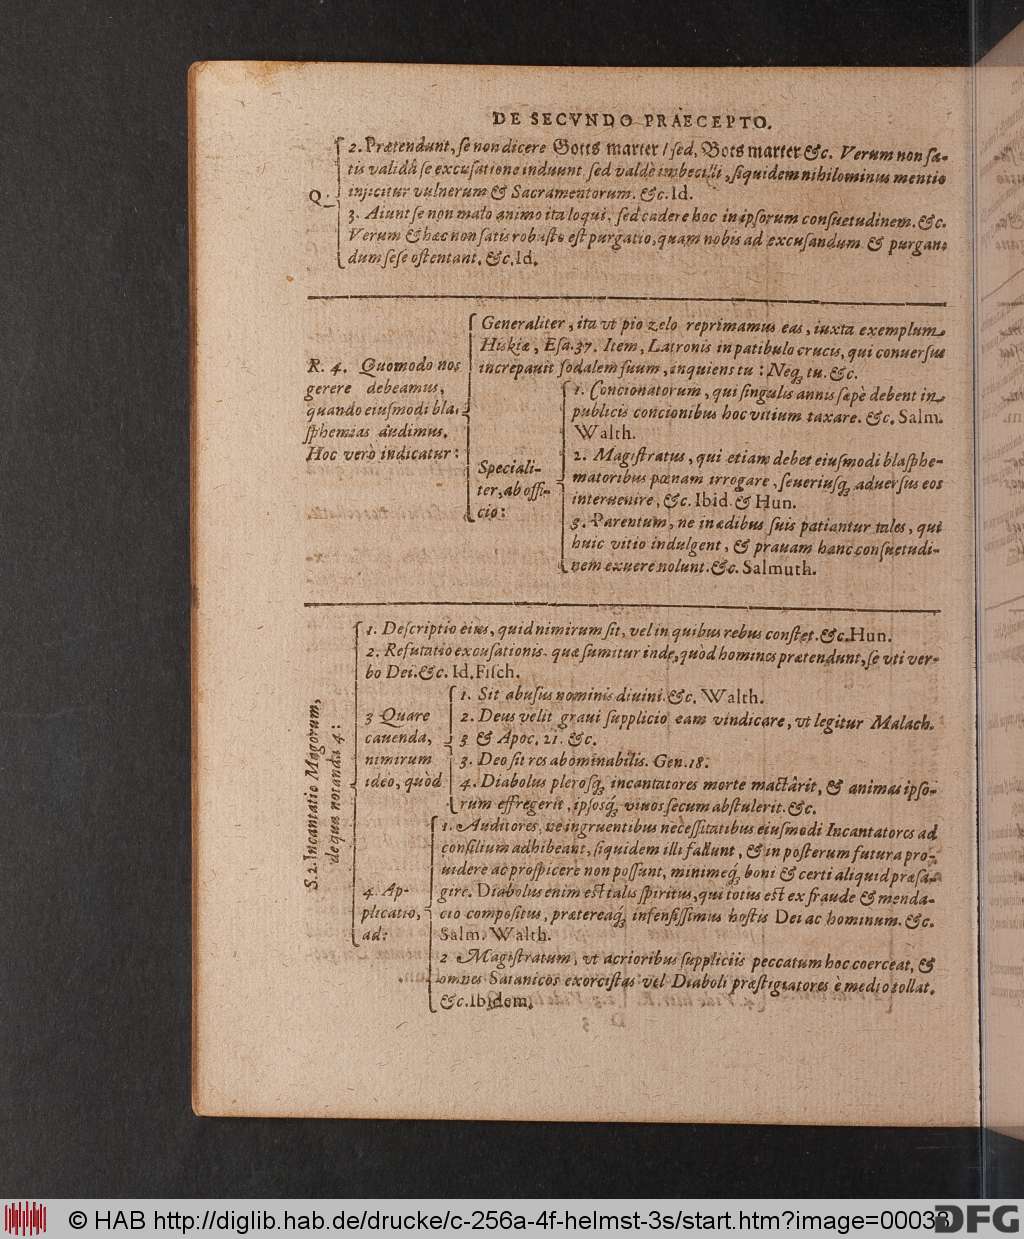 DE SECVNDO PRAECEPTO.
Q.
2. Prætendunt, ſe non dicere Gotts marter / ſed, Bots marter &c. Verum non ſa-
tis validâ ſe excuſatione induunt, ſed valdè imbecilli, ſiquidem nihilominus mentio
injicitur vulnerum & Sacramentorum. &c. Id.
3. Aiunt ſe non malo animo ita loqui, ſed cadere hoc in ipſorum conſuetudinem. &c.
Verum & hæc non ſatis robuſta eſt purgatio, quam nobis ad excuſandum & purgan-
dum ſeſe oſtentant. &c. Id.
R. 4. Quomodo nos
gerere debeamus,
quando eiuſmodi bla-
ſphemias audimus.
Hoc verò indicatur:
Generaliter, ita vt pio zelo reprimamus eas, iuxta exemplum
Hiskiæ, Eſa. 37. Item, Latronis in patibulo crucis, qui conuerſus
increpauit ſodalem ſuum, inquiens tu: Neq; tu. &c.
Speciali-
ter, ab offi-
cio:
1. Concionatorum, qui ſingulis annis ſæpè debent in
publicis concionibus hoc vitium taxare. &c. Salm.
Walth.
2. Magiſtratus, qui etiam debet eiuſmodi blaſphe-
matoribus pœnam irrogare, ſeueriuſq; aduerſus eos
interuenire, &c. Ibid. & Hun.
3. Parentum, ne in ædibus ſuis patiantur tales, qui
huic vitio indulgent, & prauam hanc conſuetudi-
nem exuere nolunt. &c. Salmuth.
S. 2. Incantatio Magorum,
de qua notanda 4:
1. Deſcriptio eius, quid nimirum ſit, vel in quibus rebus conſtet. &c. Hun.
2. Refutatio excuſationis, quæ ſumitur inde, quòd homines prætendunt, ſe vti ver-
bo Dei. &c. Id. Fiſch.
3 Quare
cauenda,
nimirum
ideo, quòd
1. Sit abuſus nominis diuini. &c. Walth.
2. Deus velit graui ſupplicio eam vindicare, vt legitur Malach.
3 & Apoc. 21. &c.
3. Deo ſit res abominabilis. Gen. 18.
4. Diabolus pleroſq; incantatores morte mactârit, & animas ipſo-
rum effregerit, ipſosq; viuos ſecum abſtulerit. &c.
4. Ap-
plicatio,
ad:
1. Auditores, ne ingruentibus neceſſitatibus eiuſmodi Incantatores ad
conſilium adhibeant, ſiquidem illi fallunt, & in poſterum futura pro-
uidere ac proſpicere non poſſunt, minimeq; boni & certi aliquid præſa-
gire. Diabolus enim eſt talis ſpiritus, qui totus eſt ex fraude & menda-
cio compoſitus, prætereaq; infenſiſſimus hoſtis Dei ac hominum. &c.
Salm. Walth.
2 Magiſtratum, vt acrioribus ſuppliciis peccatum hoc coerceat, &
omnes Satanicos exorciſtas vel Diaboli præſtigiatores è medio tollat.
&c. Ibidem.
© HAB http://diglib.hab.de/drucke/c-256a-4f-helmst-3s/start.htm?image=00038
DFG